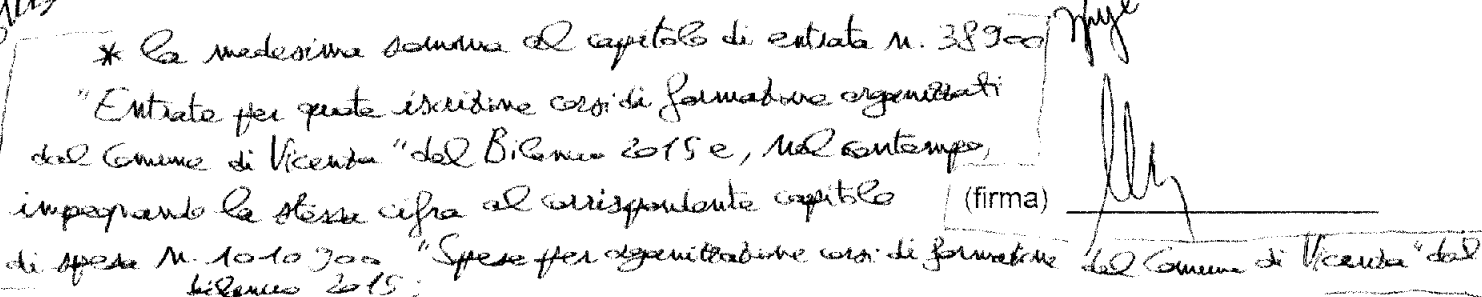 * la medesima somma al capitolo di entrata n. 38900
"Entrate per quote iscrizione corsi di formazione organizzati
dal Comune di Vicenza" del Bilancio 2015 e, nel contempo,
impegnando la stessa cifra al corrispondente capitolo
(firma)
di spesa n. 1010900 "Spese per organizzazione corsi di formazione del Comune di Vicenza" del
bilancio 2015;